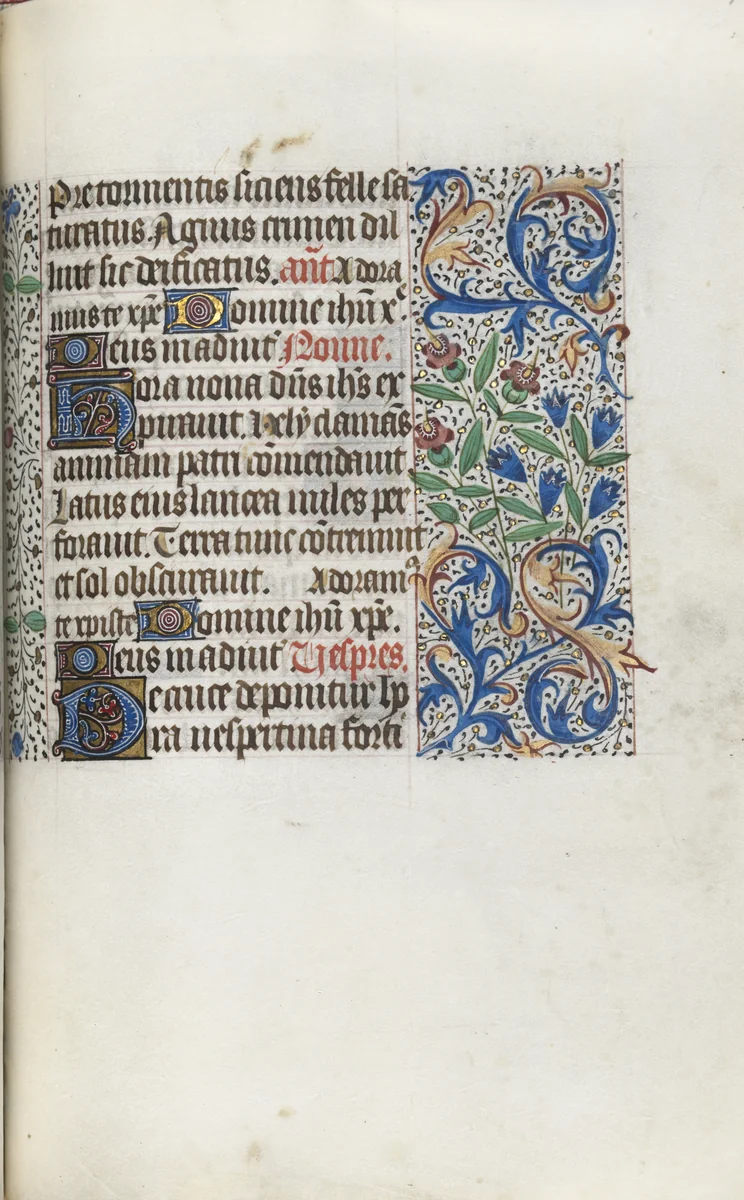 Pre tormentis siciens felle sa
turatus. Agnus crimen dil
luit sic deificatus. añt Adora
mus te xp̃e Domine ihũ x
Deus in adiut Nonne.
Hora nona dñs ihs̃ ex
pirauit. Hely clamans
animam patri cõmendauit
Latus eius lancea miles per
forauit. Terra tunc cõtremuit
et sol obscurauit. Adoram9
te xpiste Domine ihũ xp̃e.
Deus in adiut Vespres.
De cruce deponitur ho
ra uespertina forti